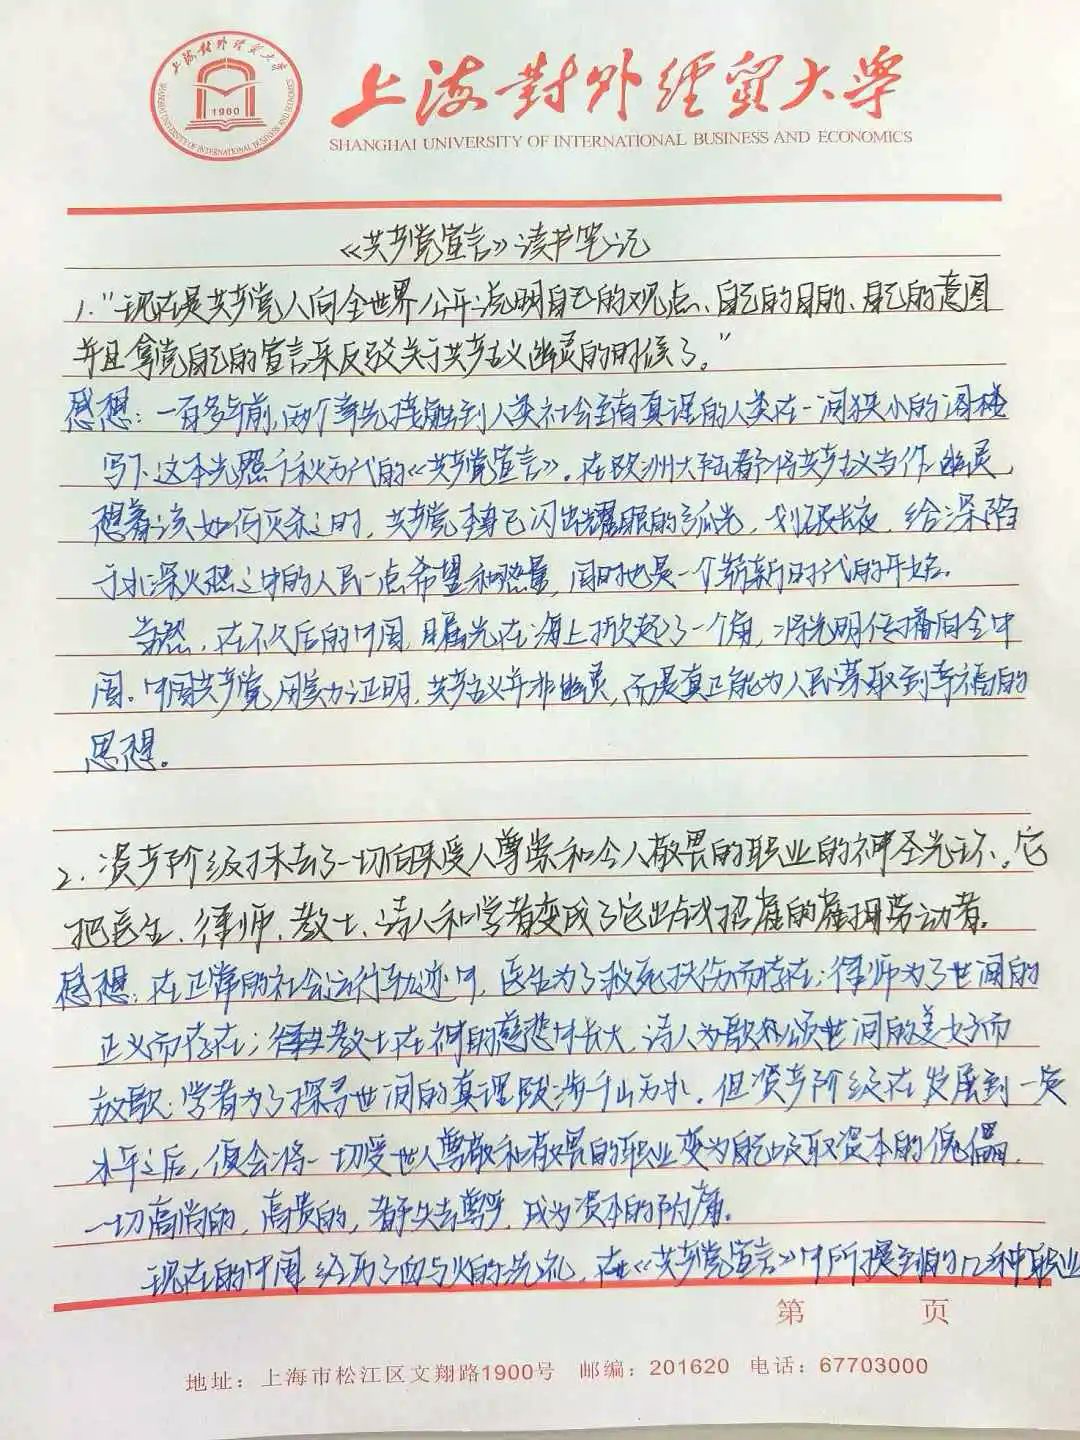 上海对外经贸大学
SHANGHAI UNIVERSITY OF INTERNATIONAL BUSINESS AND ECONOMICS
1960
上海对外经贸大学
SHANGHAI UNIVERSITY OF INTERNATIONAL BUSINESS AND ECONOMICS
《共产党宣言》读书笔记
1. "现在是共产党人向全世界公开说明自己的观点、自己的目的、自己的意图
并且拿党自己的宣言来反驳关于共产主义幽灵的时候了。"
感想：一百多年前，两个率先接触到人类社会至高真理的人类在一间狭小的阁楼
写下这本光照千秋万代的《共产党宣言》。在欧洲大陆都将共产主义当作幽灵，
想着该如何灭杀之时，共产党本身已闪出耀眼的弧光，划破长夜，给深陷
于水深火热之中的人民一点希望和热量，同时也是一个崭新时代的开始。
当然，在不久后的中国，曙光在海上掀起了一个角，将光明传播向全中
国。中国共产党用实力证明，共产主义并非幽灵，而是真正能为人民谋取到幸福的
思想。
2. 资产阶级抹去了一切向来受人尊崇和令人敬畏的职业的神圣光环。它
把医生、律师、教士、诗人和学者变成了它出钱招雇的雇佣劳动者。
感想：在正常的社会运行轨迹中，医生为了救死扶伤而存在；律师为了世间的
正义而存在；教士在神的慈悲中长大，诗人为歌颂世间的美好而
放歌；学者为了探寻世间的真理跋涉千山万水。但资产阶级在发展到一定
水平之后，便会将一切受世人尊敬和敬畏的职业变为自己吸取资本的傀儡，
一切高尚的，高贵的，都失去尊严，成为资本的附庸。
现在的中国经历了血与火的洗礼，在《共产党宣言》中所提到的几种职业
第 页
地址：上海市松江区文翔路1900号 邮编：201620 电话：67703000